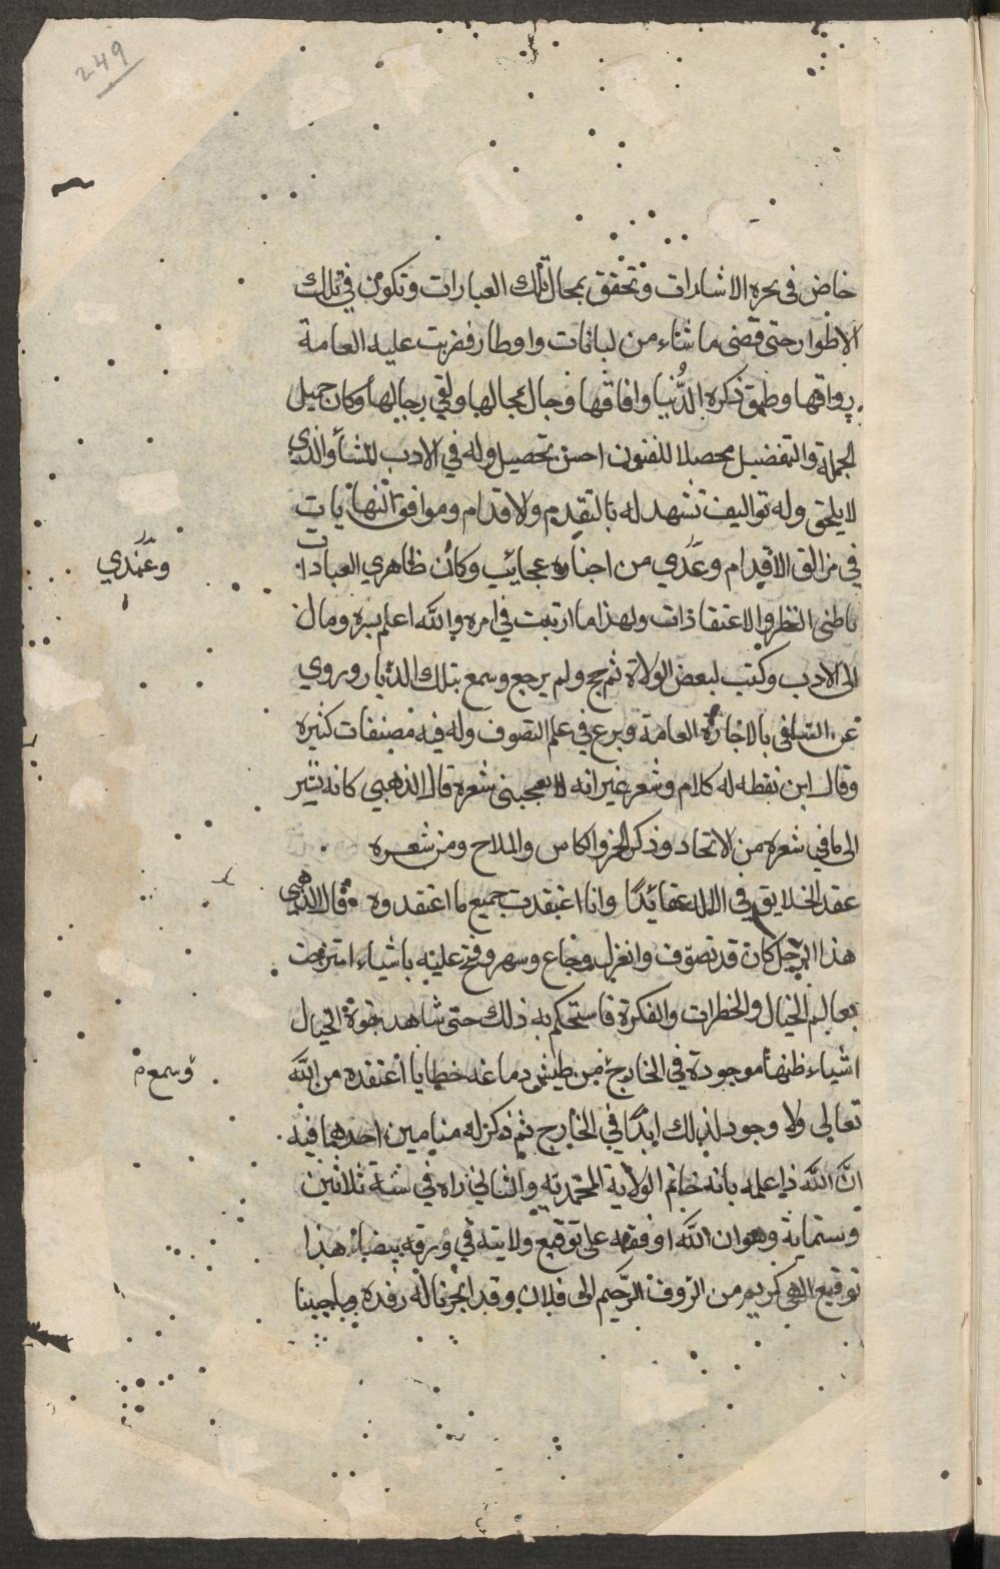 249
خاض في بحره الاشارات وتحقق بمحال تلك العبارات وتكون في تلك
الاطوار حتى قضى ما شاء من لبانات واوطار فضربت عليه العامة
رواقها وطبق ذكره الدُّنيا وافاقها وجال بمجالها ولقي رجالها وكان جميل
الجملة والتفضيل محصلا للفنون احسن تحصيل وله في الادب الشأو الذي
لا يلحق وله تواليف تشهد له بالتقدم ولاقدام ومواقف النهايات
في مزالق الاقدام وعندي من اخباره عجائب وكان ظاهري العبادات
وعندي
باطني النظر والاعتقاذات ولهذا ما ارتبت في امره والله اعلم بسره ومال
الى الادب وكتب لبعض الولاة ثم حج ولم يرجع وسمع بتلك الديار وروي
عن السلفي بالاجازة العامة وبرع في علم التصوف وله فيه مصنفات كثيره
وقال ابن نقطه له كلام وشعر غير انه لا يعجبني شعره قال الذهبي كانه يشير
الى ما في شعره من الاتحاد وذكر الخمر والكاس والملاح ومن شعره
عقد الخلايق في الاله عقائدًا وانا اعتقدت جميع ما اعتقدوه وقال الذهبي
هذا الرجل كان قد تصوّف وانعزل وجاع وسهر وفتح عليه باشياء امتزجت
بعالم الخيال والخطرات والفكرة فاستحكم به ذلك حتى شاهد بقوة الخيال
اشياء ظنها موجودة في الخارج من طيش دماغه خطابا اعتقده من الله
وسمع م
تعالى ولا وجود لذلك ابدًا في الخارج ثم ذكر له منامين احدهما فيه
انَّ الله ذا علمه بانه خاتم الولاية المحمّدية والثاني راه في سنة ثلاثين
وستماية وهو ان الله اوقفه على توقيع ولايته في ورقه بيضاء هذا
توقيع الهي كريم من الرؤف الرَّحيم الى فلان وقد اجزنا له رفده وما خيبنا